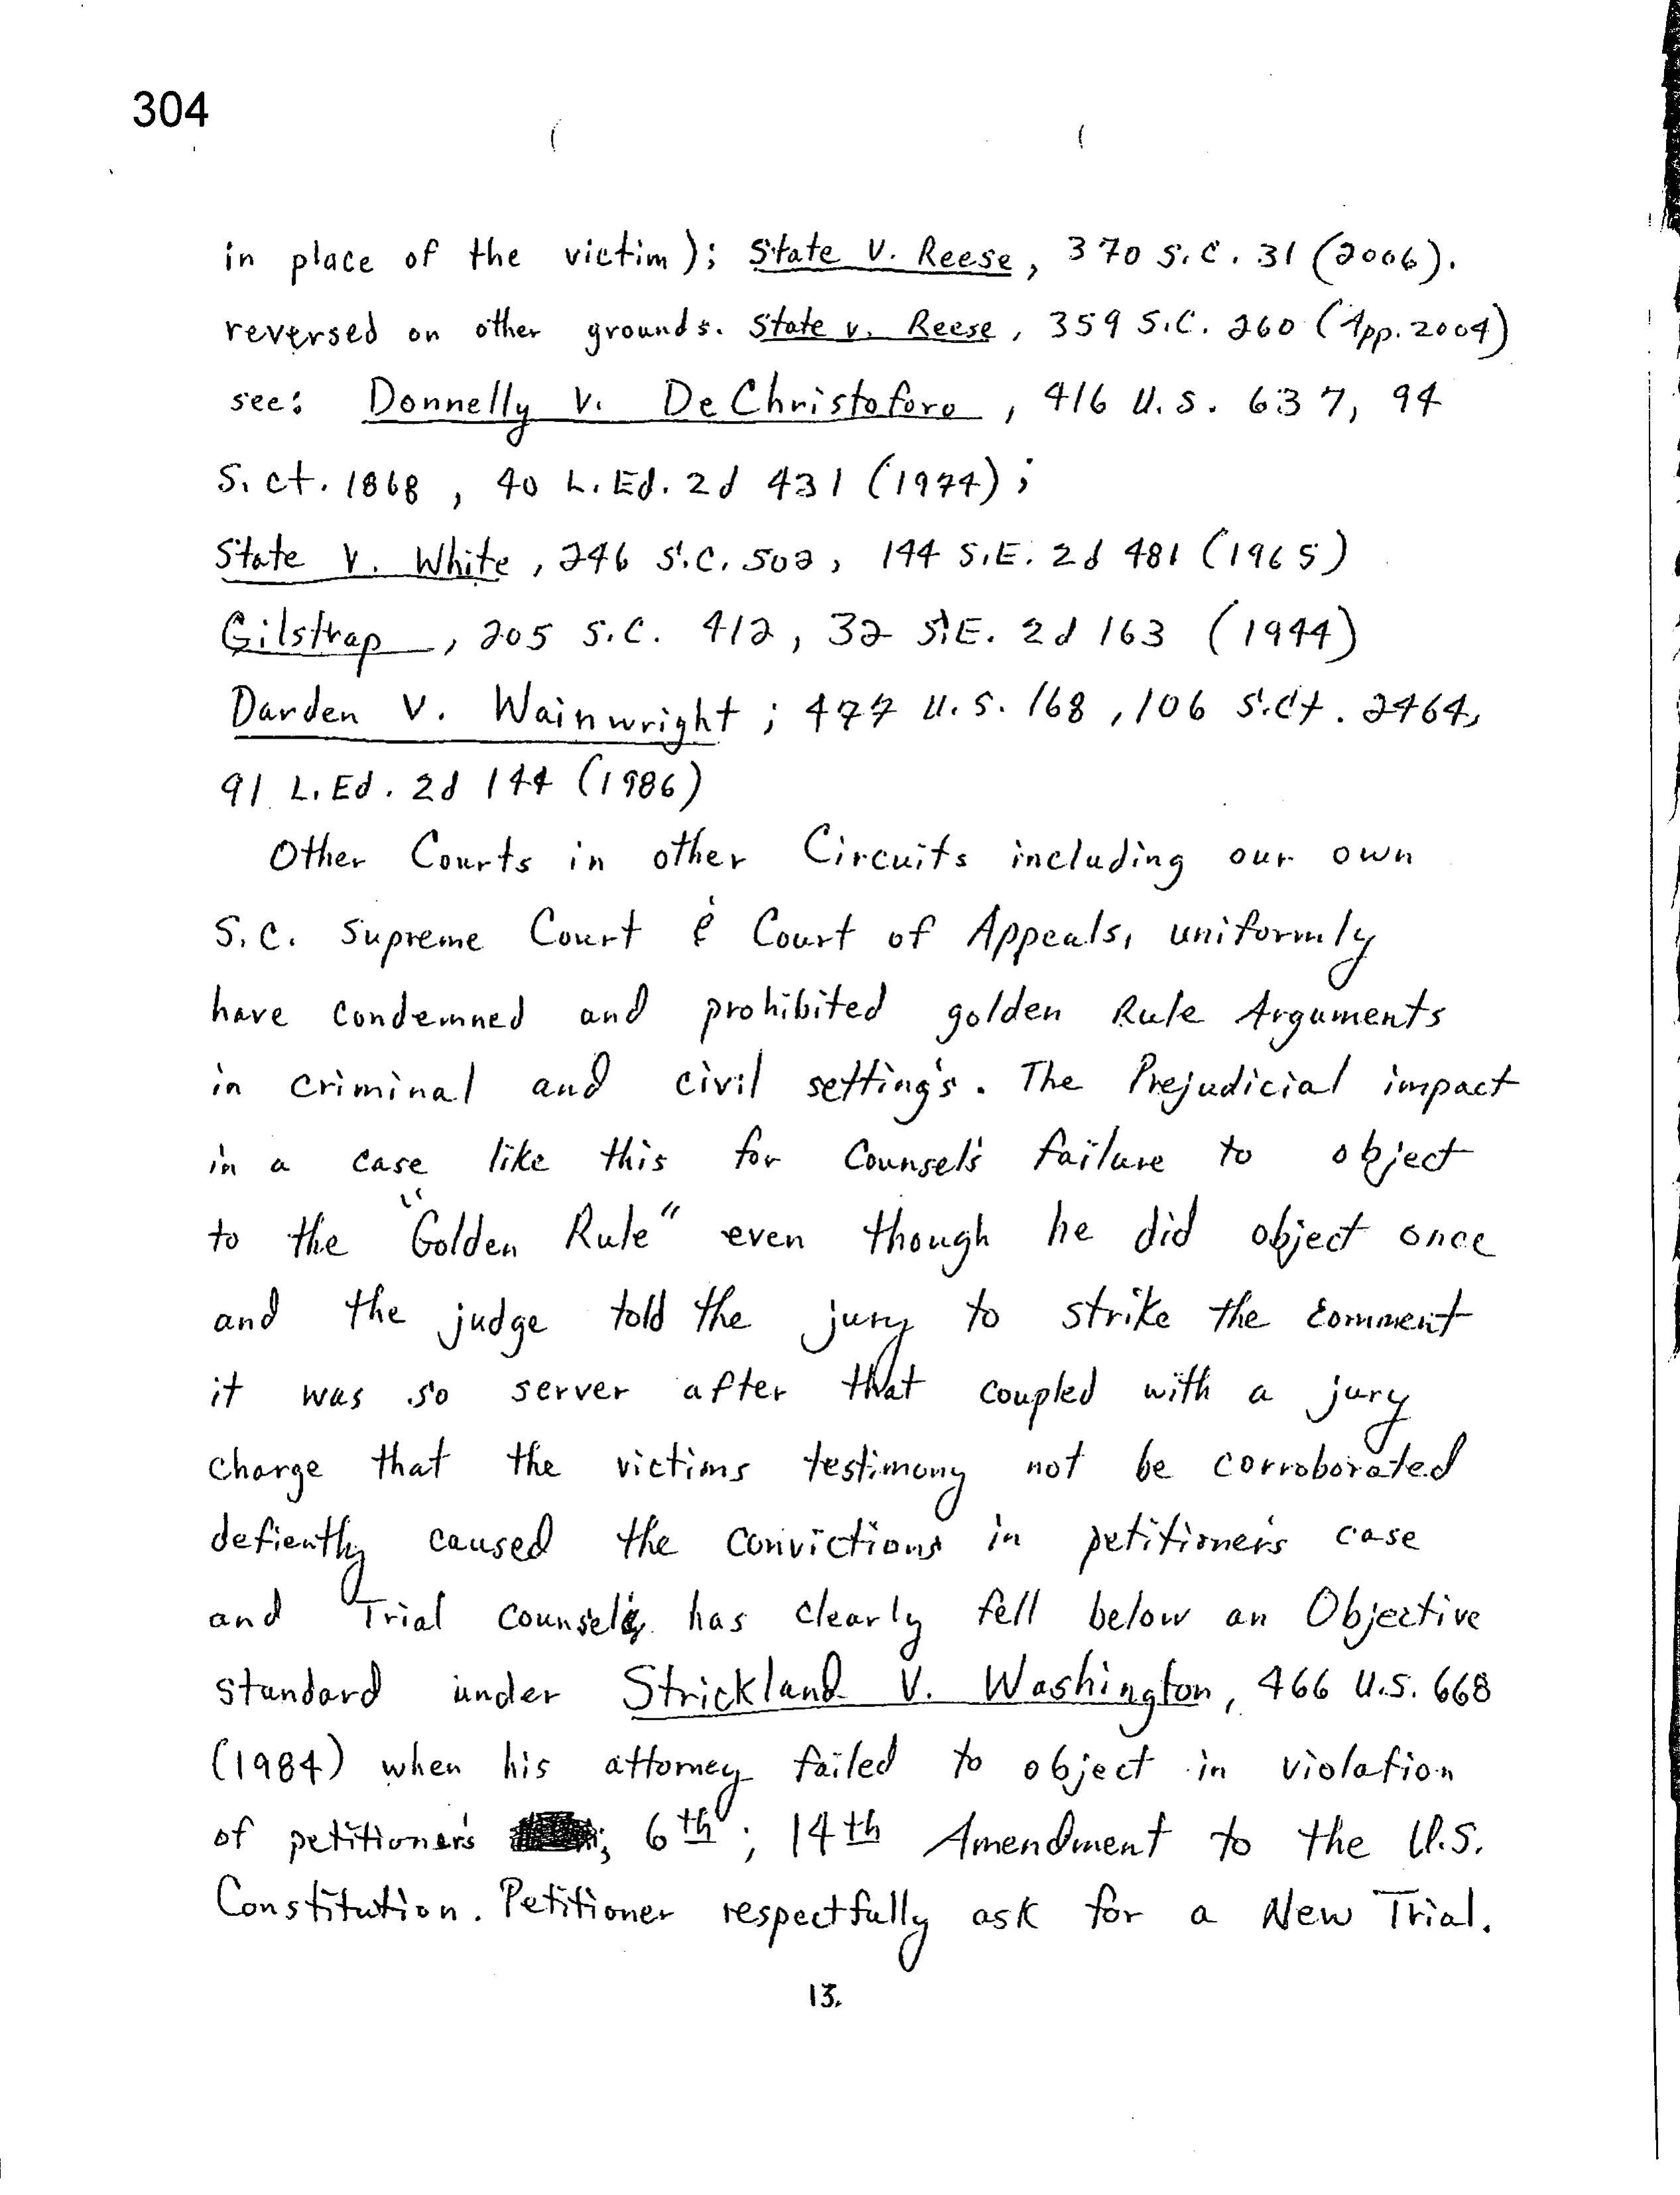 304
in place of the victim); State V. Reese, 370 S.C. 31 (2006).
reversed on other grounds. State v. Reese, 359 S.C. 260 (App. 2004)
see: Donnelly V. DeChristoforo, 416 U.S. 637, 94
S. ct. 1868, 40 L. Ed. 2d 431 (1974);
State V. White, 246 S.C. 502, 144 S.E. 2d 481 (1965)
Gilstrap, 205 S.C. 412, 32 S.E. 2d 163 (1944)
Darden V. Wainwright; 477 U.S. 168, 106 S.Ct. 2464,
91 L. Ed. 2d 144 (1986)
Other Courts in other Circuits including our own
S.C. Supreme Court & Court of Appeals, uniformly
have condemned and prohibited golden Rule Arguments
in criminal and civil setting's. The Prejudicial impact
in a case like this for Counsel's failure to object
to the "Golden Rule" even though he did object once
and the judge told the jury to strike the comment
it was so server after that coupled with a jury
charge that the victims testimony not be corroborated
defiently caused the convictions in petitioner's case
and Trial counsel's has clearly fell below an Objective
standard under Strickland V. Washington, 466 U.S. 668
(1984) when his attorney failed to object in violation
of petitioner's ; 6th ; 14th Amendment to the U.S.
Constitution. Petitioner respectfully ask for a New Trial.
13.